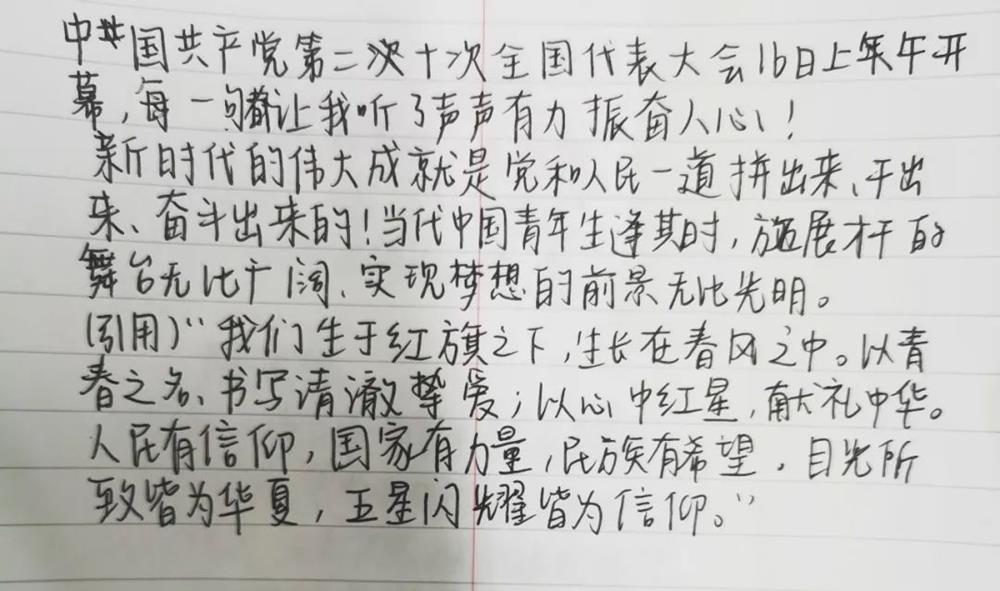 中共国共产党第二次十次全国代表大会16日上年午开
幕，每一句都让我听了声声有力振奋人心！
新时代的伟大成就是党和人民一道拼出来、干出
来、奋斗出来的！当代中国青年生逢其时，施展才干的
舞台无比广阔、实现梦想的前景无比光明。
（引用）“我们生于红旗之下，生长在春风之中。以青
春之名、书写清澈挚爱；以心中红星，献礼中华。
人民有信仰，国家有力量，民族有希望，目光所
致皆为华夏，五星闪耀皆为信仰。”